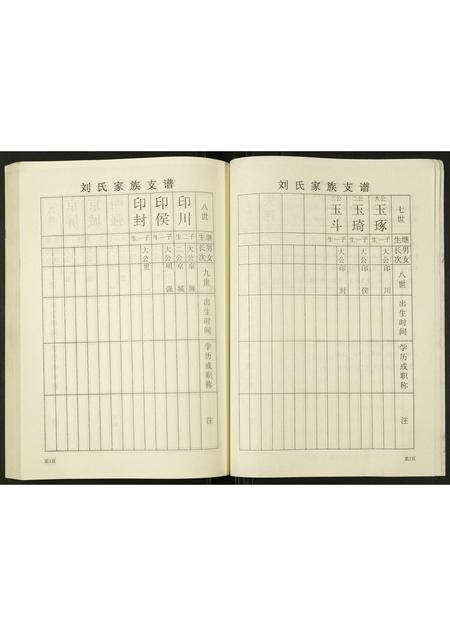 刘氏家族支谱
七世
大公 玉琢
二公 玉琦
三公 玉斗
继生
生一子
生一子
生一子
男女长次
八世
大公 印川
大公 印侯
大公 印封
出生时间
学历或职称
注
第2页
刘氏家族支谱
八世
印川
印侯
印封
生二子
生一子
生一子
九世
二公 京城
大公 明强
出生时间
学历或职称
注